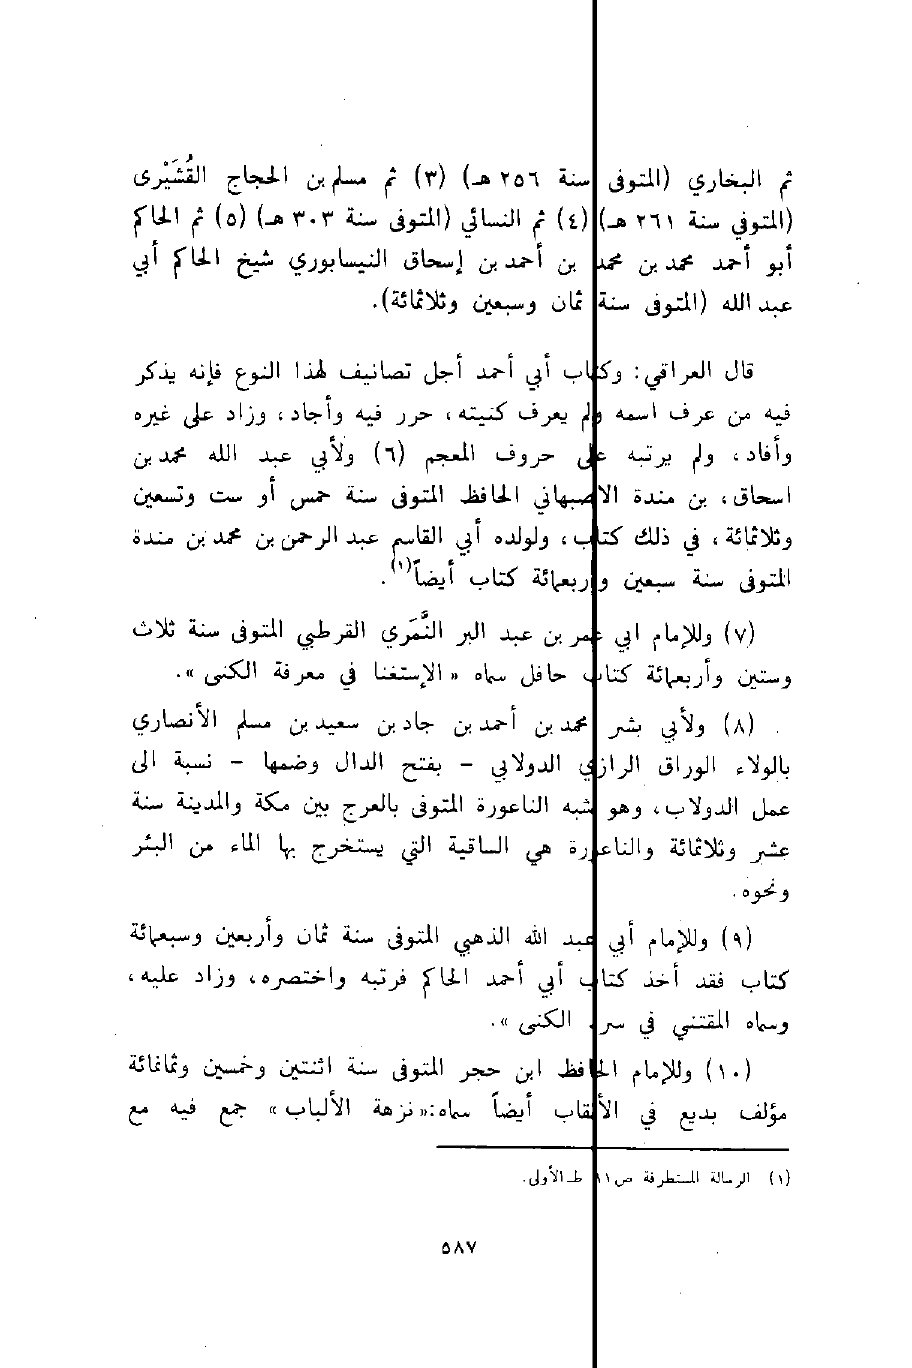 ثم البخاري (المتوفى سنة ٢٥٦ هـ) (٣) ثم مسلم بن الحجاج القُشَيْرى
(المتوفي سنة ٢٦١ هـ) (٤) ثم النسائي (المتوفى سنة ٣٠٣ هـ) (٥) ثم الحاكم
أبو أحمد محمد بن محمد بن أحمد بن إسحاق النيسابوري شيخ الحاكم أبي
عبد الله (المتوفى سنة ثمان وسبعين وثلاثمائة).
قال العراقي: وكتاب أبي أحمد أجل تصانيف لهذا النوع فإنه يذكر
فيه من عرف اسمه ولم يعرف كنيته، حرر فيه وأجاد، وزاد على غيره
وأفاد، ولم يرتبه على حروف المعجم (٦) ولأبي عبد الله محمد بن
اسحاق، بن مندة الاصبهاني الحافظ المتوفى سنة خمس أو ست وتسعين
وثلاثمائة، في ذلك كتاب، ولولده أبي القاسم عبد الرحمن بن محمد بن مندة
المتوفى سنة سبعين وأربعمائة كتاب أيضاً(١).
(٧) وللإمام ابي عمر بن عبد البر النَّمَري القرطبي المتوفى سنة ثلاث
وستين وأربعمائة كتاب حافل سماه « الإستغنا في معرفة الكنى ».
(٨) ولأبي بشر محمد بن أحمد بن حماد بن سعيد بن مسلم الأنصاري
بالولاء الوراق الرازي الدولابي - بفتح الدال وضمها - نسبة الى
عمل الدولاب، وهو شبه الناعورة المتوفى بالعرج بين مكة والمدينة سنة
عشر وثلاثمائة والناعورة هي الساقية التي يستخرج بها الماء من البئر
ونحوه.
(٩) وللإمام أبي عبد الله الذهبي المتوفى سنة ثمان وأربعين وسبعمائة
كتاب فقد أخذ كتاب أبي أحمد الحاكم فرتبه واختصره، وزاد عليه،
وسماه المقتني في سرد الكنى ».
(١٠) وللإمام الحافظ ابن حجر المتوفى سنة اثنتين وخمسين وثمانمائة
مؤلف بديع في الألقاب أيضاً سماه: «نزهة الألباب» جمع فيه مع
(١) الرسالة المستطرفة ص ٩١ طـ الأولى.
٥٨٧